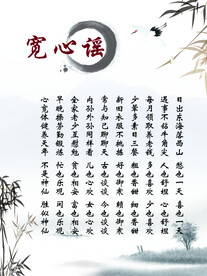 宽心谣
日出东海落西山 愁也一天 喜也一天
遇事不钻牛角尖 人也舒坦 心也舒坦
每月领取养老钱 多也喜欢 少也喜欢
少荤多素日三餐 粗也香甜 细也香甜
新旧衣服不挑拣 好也御寒 赖也御寒
常与知己聊聊天 古也谈谈 今也谈谈
内孙外孙同样看 儿也心欢 女也心欢
全家老少互慰勉 贫也相安 富也相安
早晚操劳勤锻炼 忙也乐观 闲也乐观
心宽体健养天年 不是神仙 胜似神仙